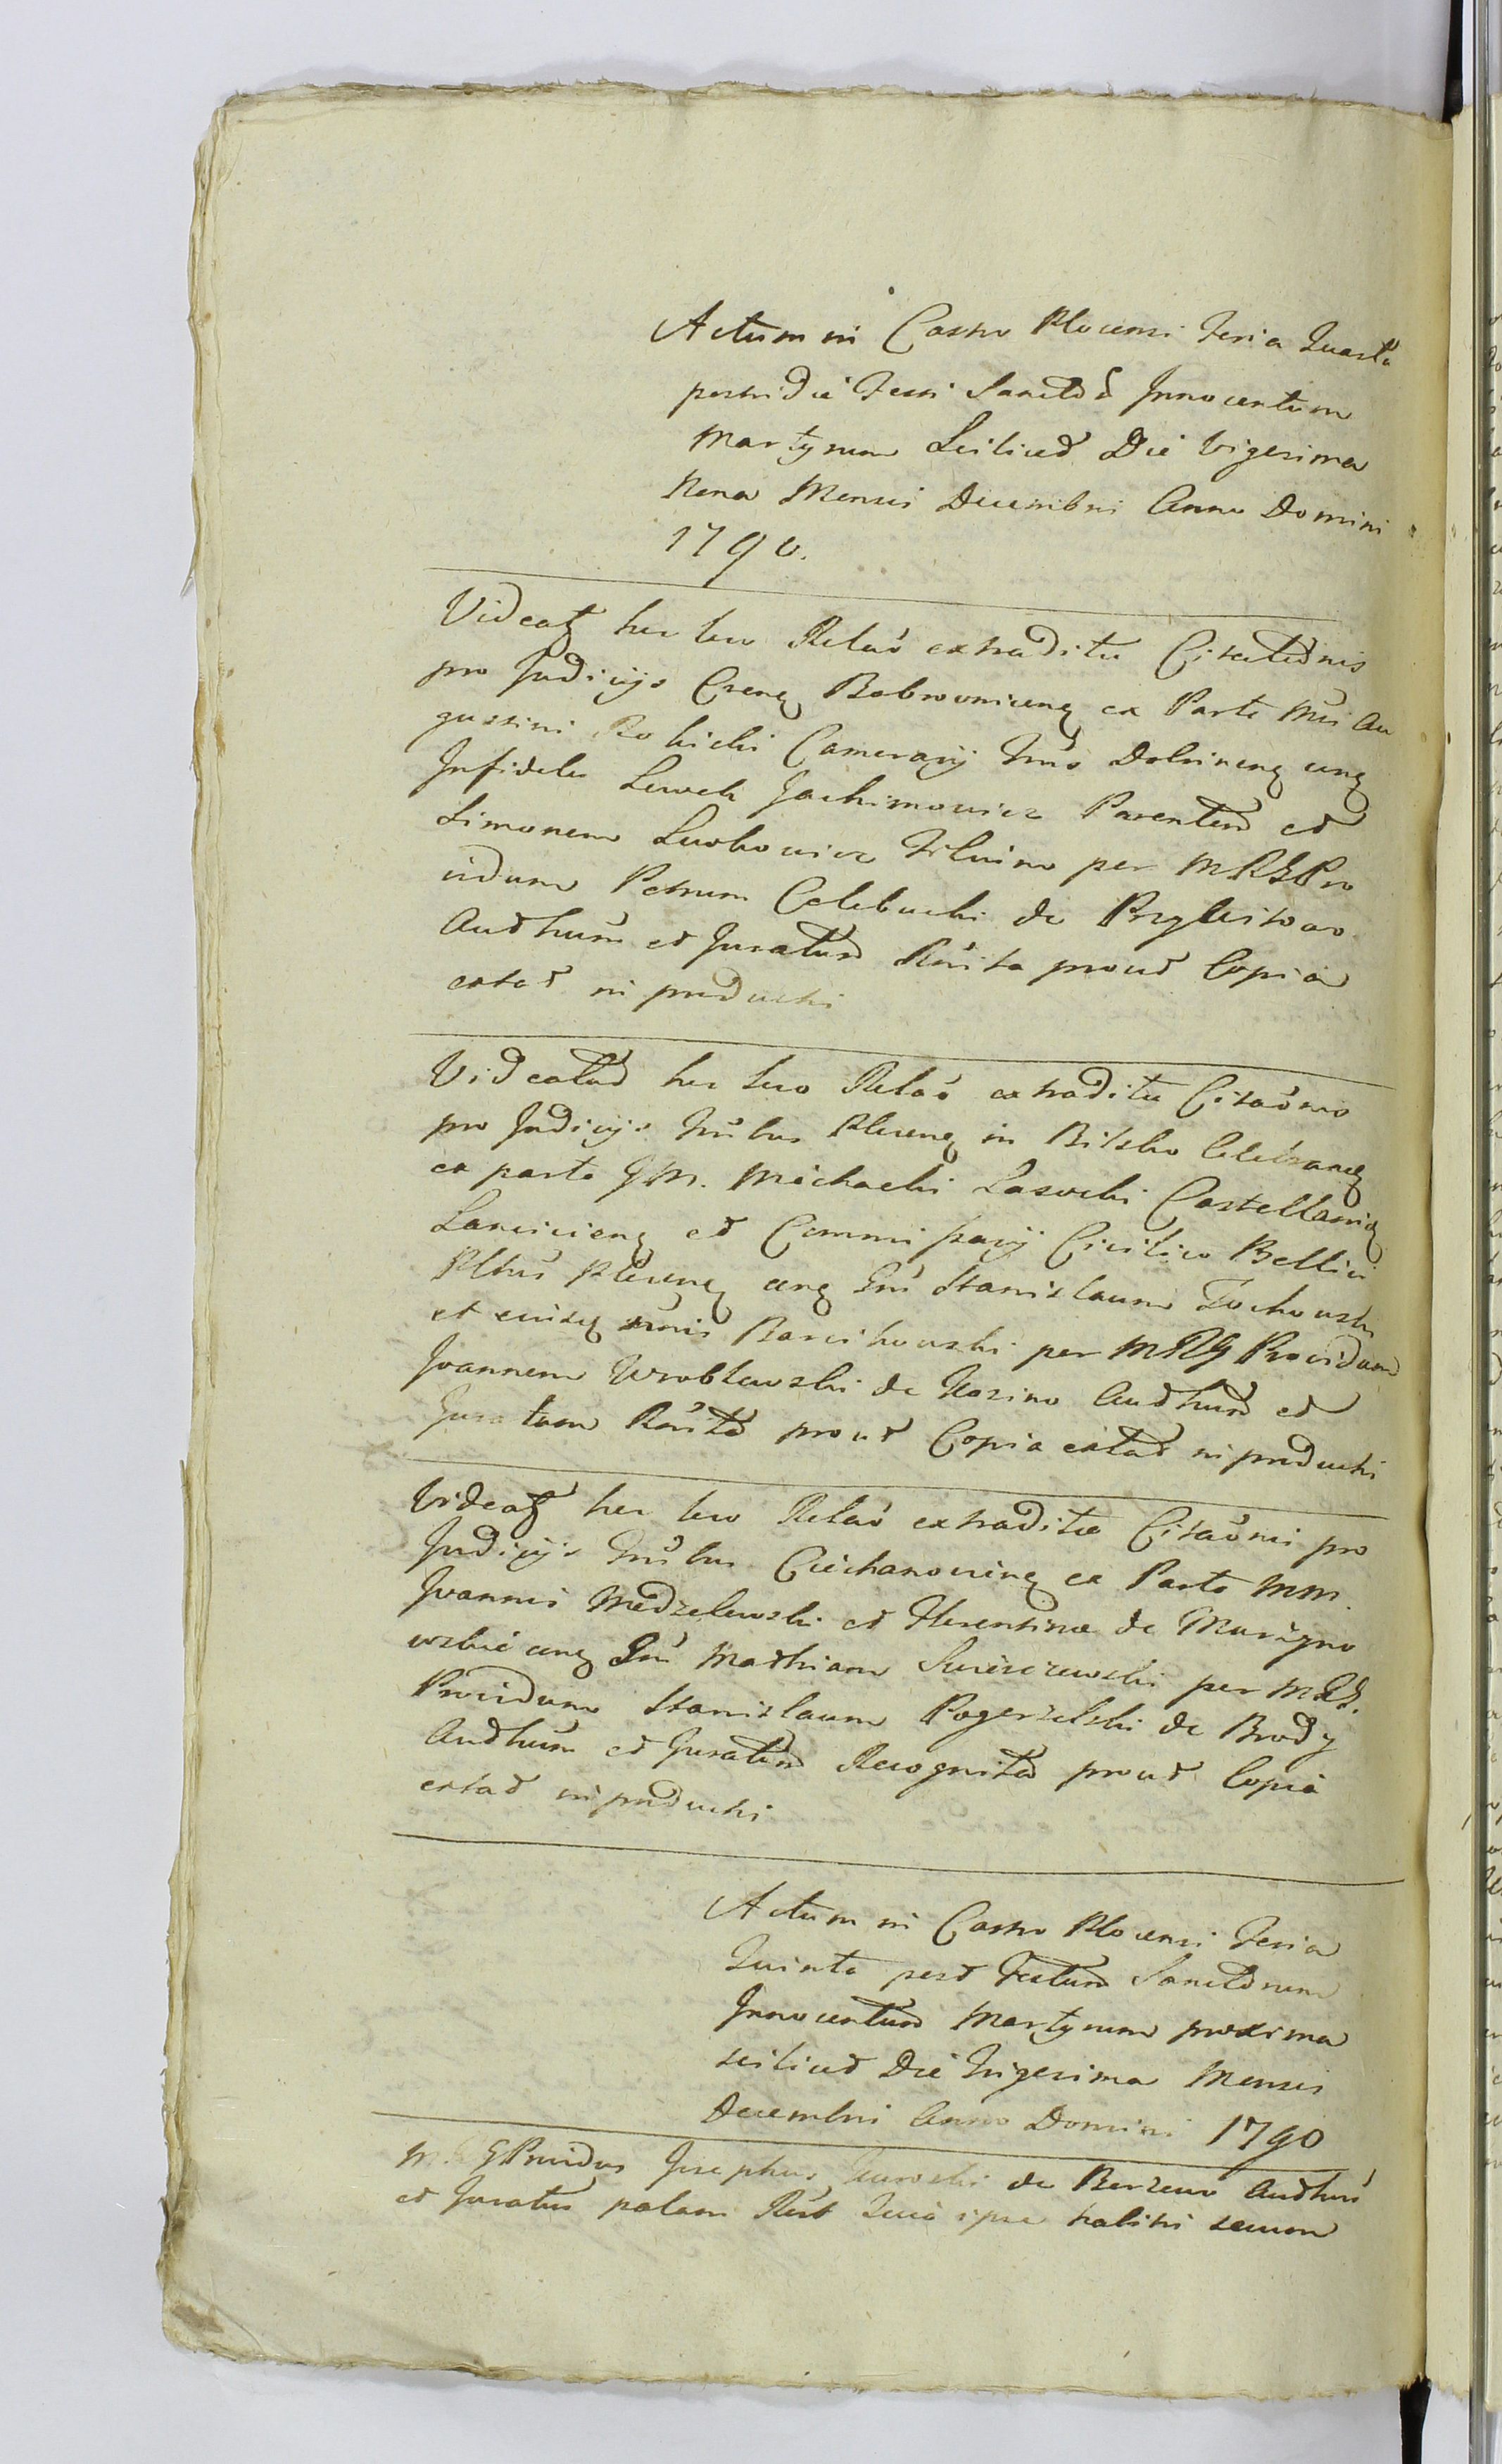 Actum in Castro Plocensi Feria Quarta
postridie Festi Sanctor Innocentum
Martyrum Scilicet Die Vigesima
Nona Mensis Decembris Anno Domini
1790.
Videatz hic loco Relao extraditae Citationis
pro Judicijs Crens Bobrovnicens ex Parte Mci Au
gustini Rokicki Camerarij Trris Dobrinens cong
Infideles Lewek Jachimowicz Parentem et
Simonem Lewkowicz Filium per MRGPro
vidum Petrum Celebucki de
Authum et Juratum Rnita prout Copia
extat in products
Videatur hic loco Relao extraditae Citaonis
pro Judicijs Trribus Plocens in Bilsko Celebrans
ex parte GM. Michaelis Lasocki Castellani
Lanciciens et Commissarij Civilico Bellici
Pltus Plocens cong Gm Stanislaum Tochowski
et eius Barcikowski per MRG Providum
Joannem Wroblewski de Kozino Authum et
Juratum Rnita prout Copia extat in products
Videatz hic loco Relao extraditae Citaonis pro
Judicijs Trribus Ciechanoviens ex Parte MM.
Joannis Mędzelewski et Florentinae de Murzyno
wskie cong Gm Mathiam per MRG.
Providum Stanislaum Pogorzelski de Brody
Authum et Juratum Recognita prout Copia
extat in products
Actum in Castro Plocensi Feria
Quinta post Festum Sanctorum
Innocentum Martyrum proxima
scilicet Die Trigesima Mensis
Decembris Anno Domini 1790
MRGProvidus Josephus de Authus
et Juratus palam Rcit Quia ipse habitis secum